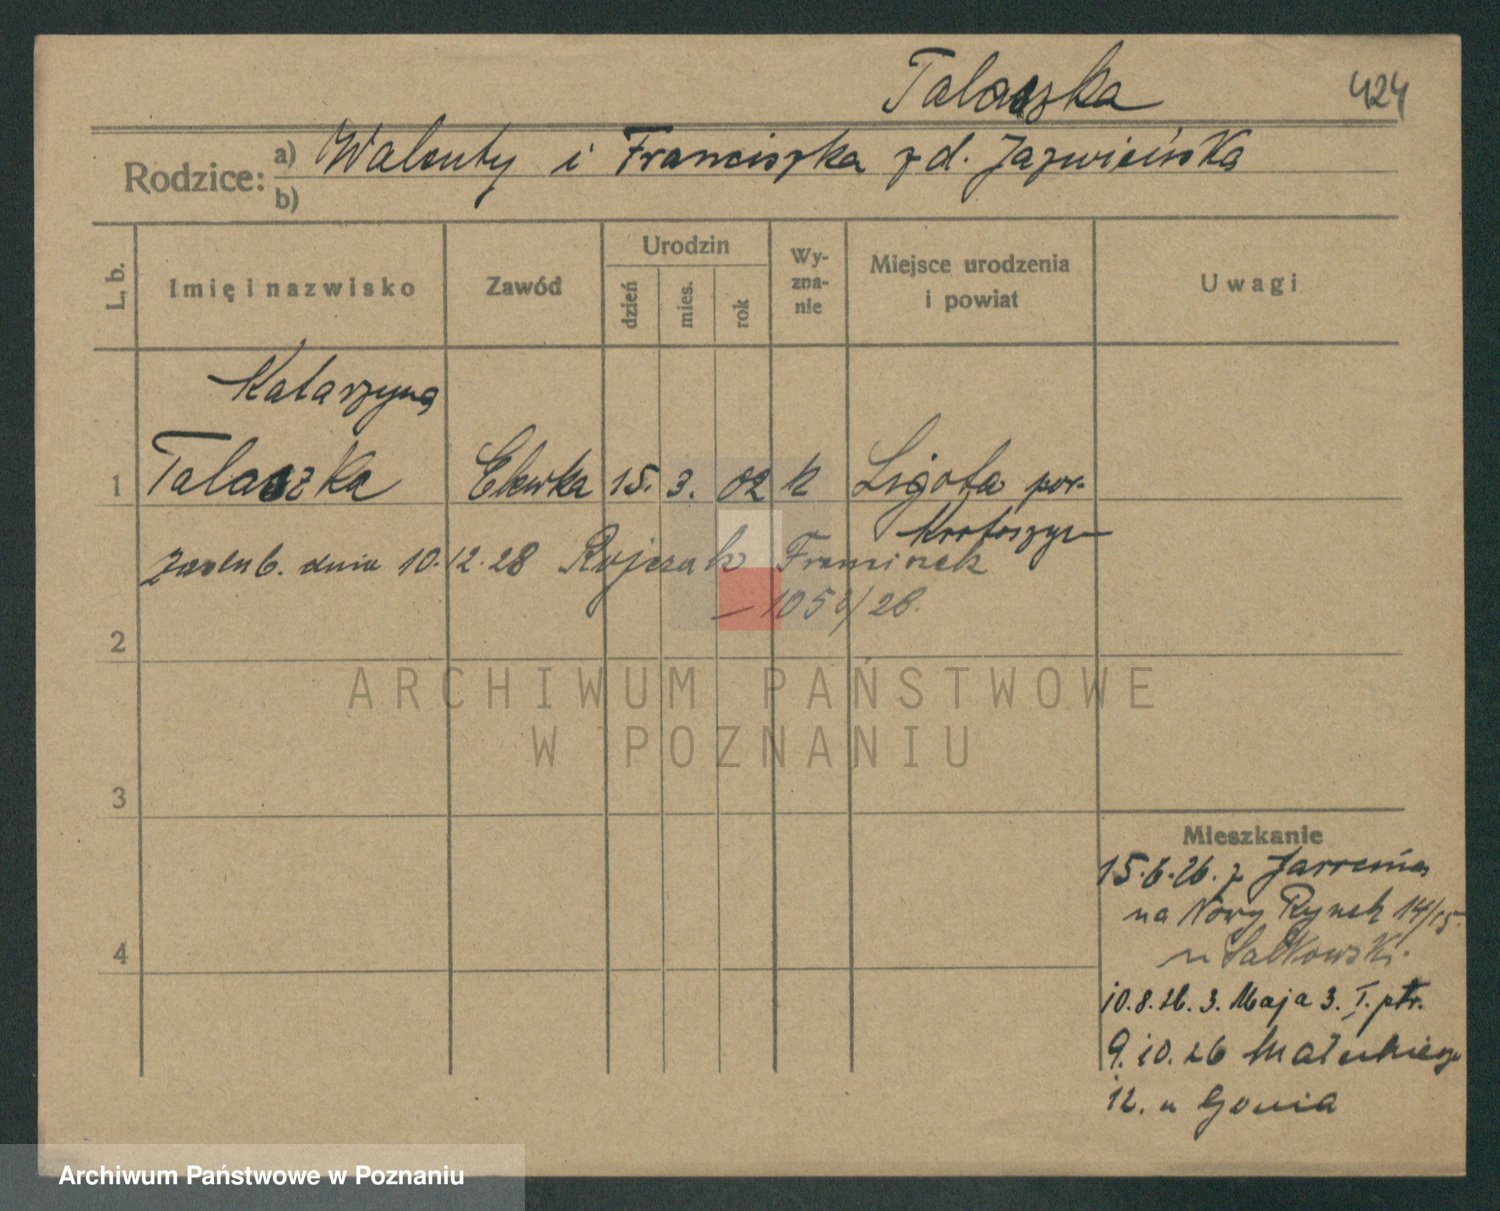 Talaszka 424
Rodzice: a) Walenty i Franciszka z d. Jazwieińska
b)
L. b. Imię i nazwisko Zawód Urodzin dzień mies. rok Wyznanie Miejsce urodzenia i powiat Uwagi
Katarzyna
1 Talaszka Elewka 15. 3. 02 k Ligota pow.
Krotoszyn
zaślub. dnia 10.12.28 Rojczak Franciszek
2
3
Mieszkanie
15.6.26. z Jarocina
na Nowy Rynek 14/15.
4
10.8.26. 3. Maja 3. I. ptr.
9.10.26
12. u Gonia
ARCHIWUM PAŃSTWOWE
W POZNANIU
Archiwum Państwowe w Poznaniu